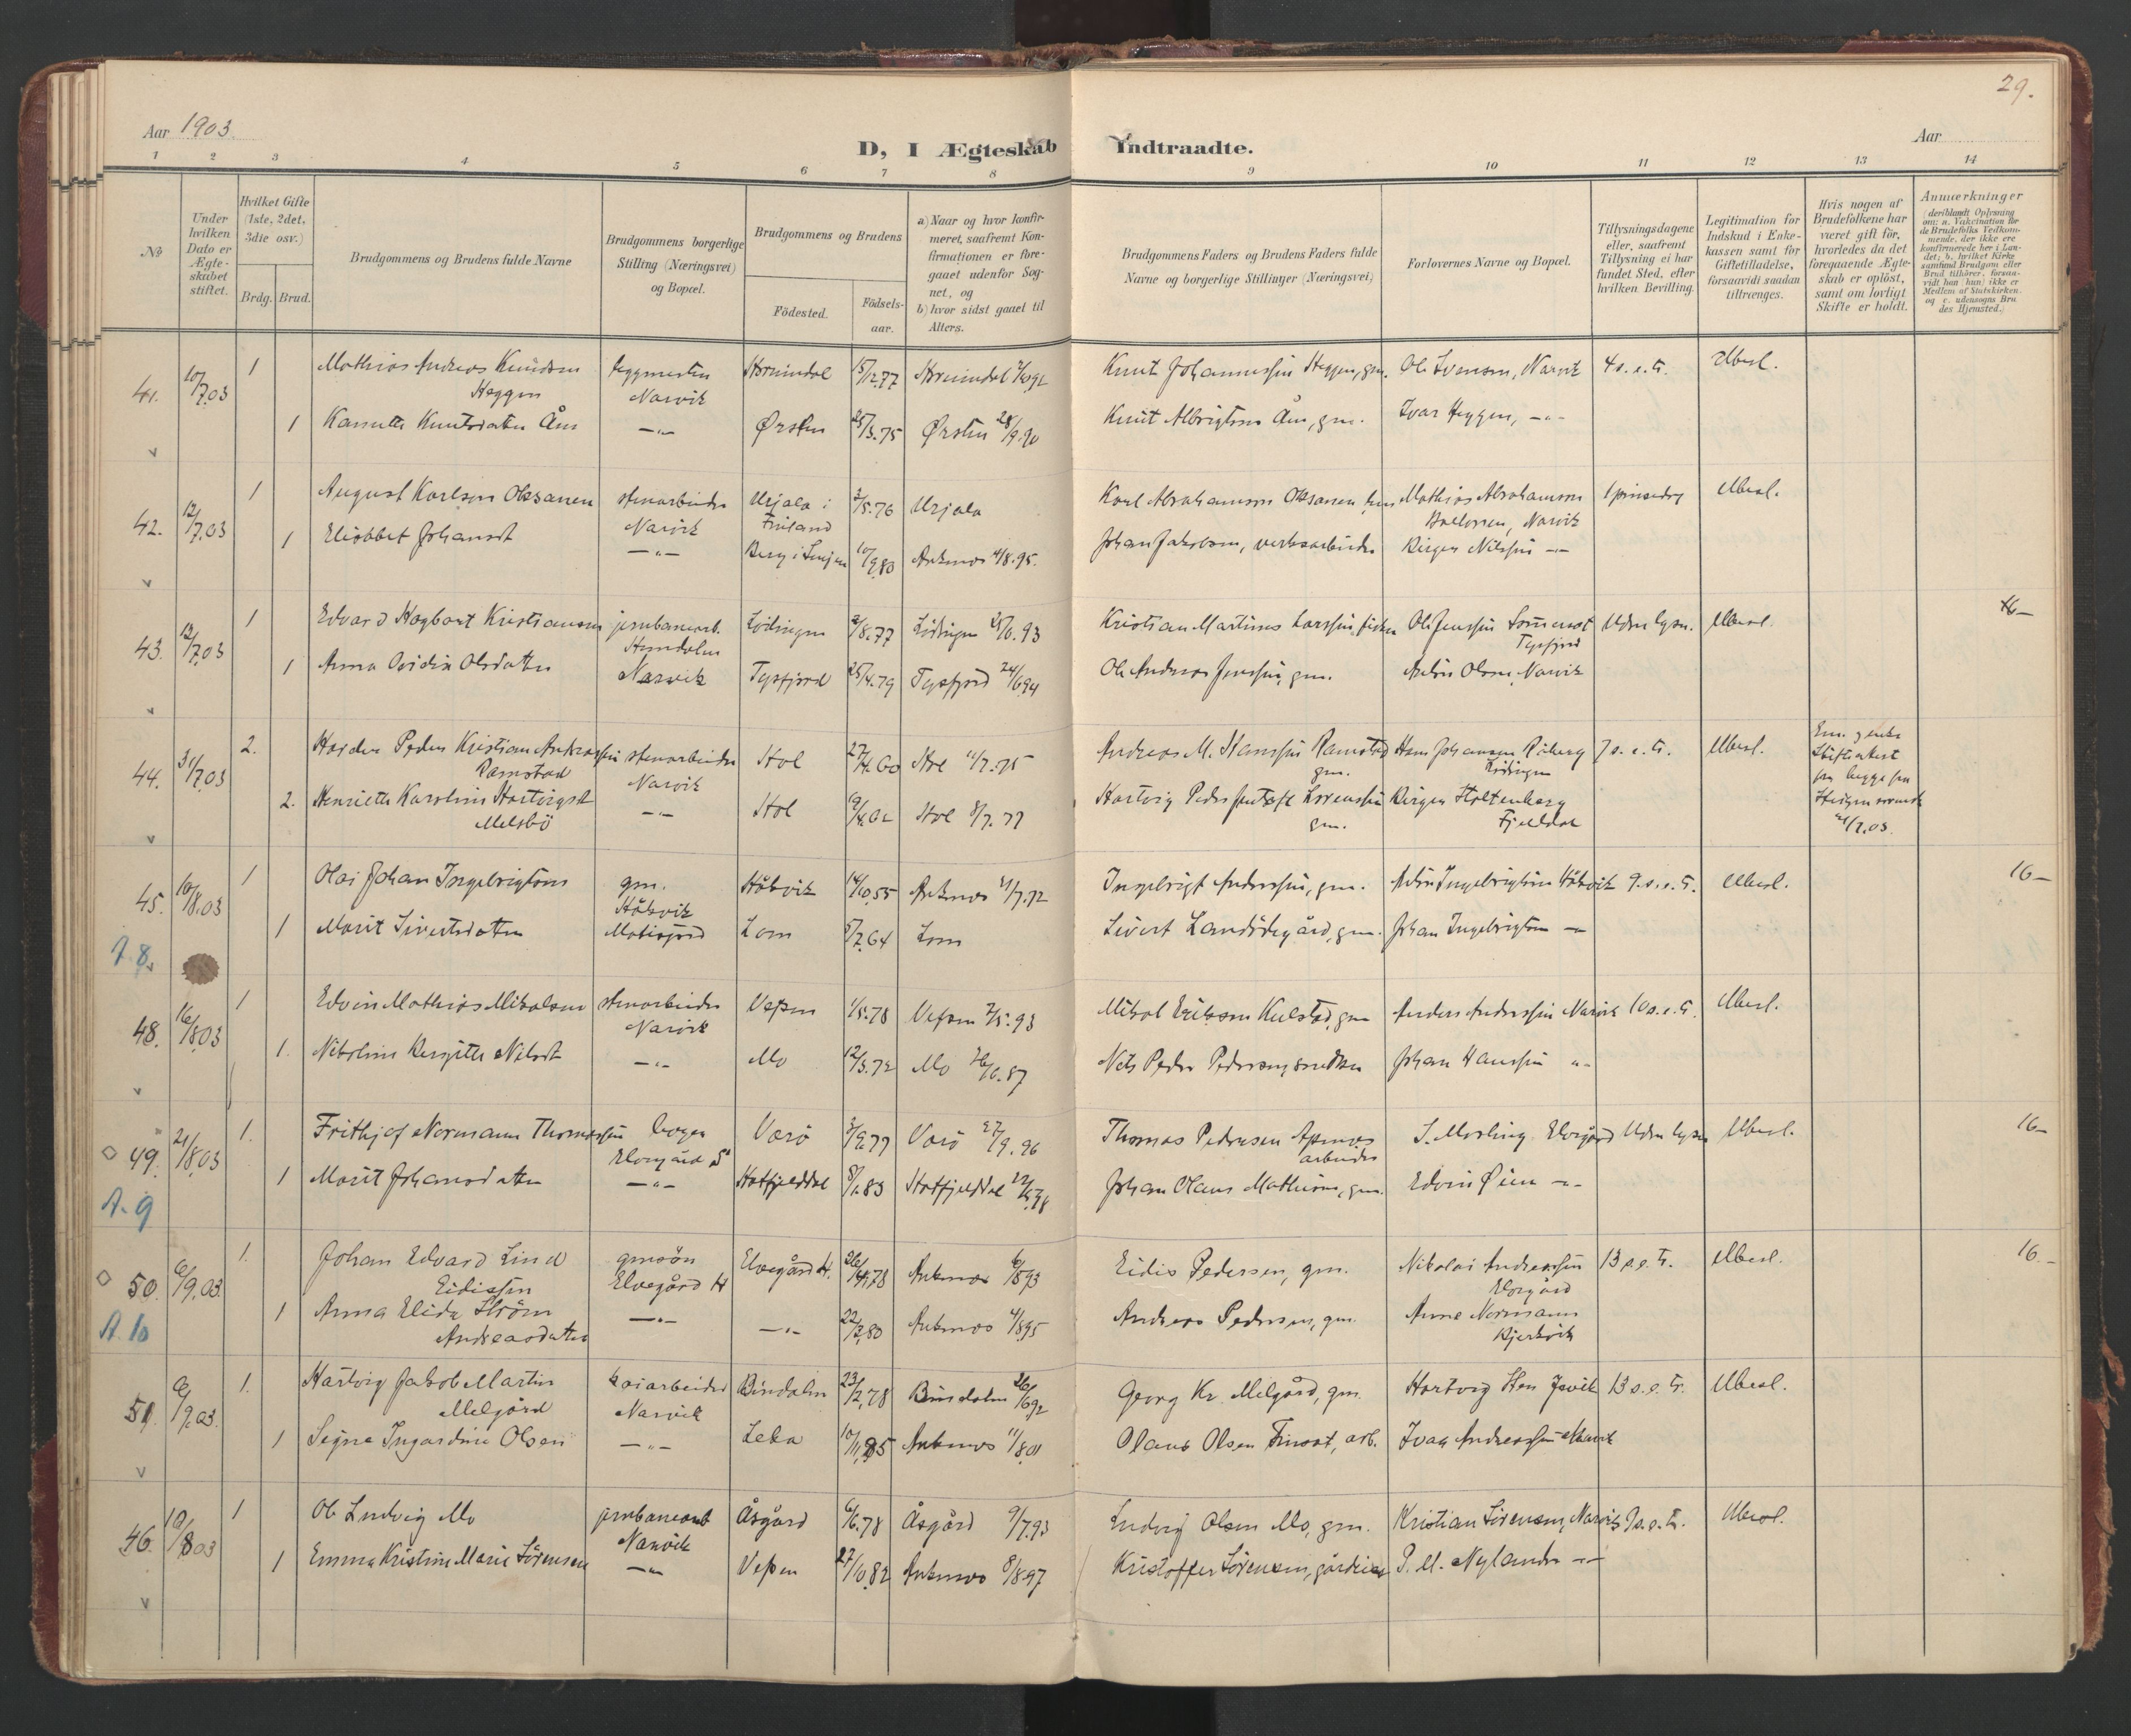 29.
Aar 1903.
D, I Ægteskab Indtraadte.
Aar
1 2 3 4 5 6 7 8 9 10 11 12 13 14
№
Under hvilken Dato er Ægteskabet stiftet.
Hvilket Gifte (1ste, 2det, 3die osv.)
Brdg. Brud.
Brudgommens og Brudens fulde Navne
Brudgommens borgerlige Stilling (Næringsvei) og Bopæl.
Brudgommens og Brudens
Födested.
Födselsaar.
a) Naar og hvor konfirmeret, saafremt Konfirmationen er foregaaet udenfor Sognet, og
b) hvor sidst gaaet til Alters.
Brudgommens Faders og Brudens Faders fulde Navne og borgerlige Stillinger (Næringsvei)
Forlovernes Navne og Bopæl.
Tillysningsdagene eller, saafremt Tillysning ei har fundet Sted, efter hvilken Bevilling.
Legitimation for Indskud i Enkekassen samt for Giftetilladelse, forsaavidt saadan tiltrænges.
Hvis nogen af Brudefolkene har været gift för, hvorledes da det foregaaende Ægteskab er oplöst, samt om lovligt Skifte er holdt.
Anmærkninger
(deriblandt Oplysning om: a. Vakcination for de Brudefolks Vedkommende, der ikke ere konfirmerede her i Landet; b. hvilket Kirkesamfund Brudgom eller Brud tilhörer, forsaavidt han (hun) ikke er Medlem af Statskirken, og c. udensogns Brudes Hjemsted.)
41. 10/7.03 1 Mathias Andreas Knudsen Heggen Narvik Hornindal 15/12.77 Hornindal Knut Johannessen Heggen, gm. Ole Svensen, Narvik 4 s. e. Tr. Uberl.
1 Knutsdatter Åm —"— Ørsten 25/3.75 Ørsten 28/9.90 Knut Albrigtsen Åm, gm. Ivar Heggen, —"—
42. 12/7.03 1 August Karlsen Oksanen stenarbeider Narvik Urjala i Finland 2/5.76 Urjala Karl Abrahamson Oksanen Mathias Abrahamson Narvik 1 pinsedag Uberl.
1 Elisabet Johansdt —"— Berg i Senjen 10/9.80 Ankenes 4/8.95. Johan Jakobsen, verksarbeider Birger Nilssen —"—
43. 12/7.03 1 Edvard Hagbart Kristiansen jernbanearb. Lödingen 2/8.77 Lödingen Kristian Martinus Larssen, fisker Ole Jenssen Tysfjord Uden lysn. Uberl. 16—
1 Anna Ovidia Olsdatter Narvik Tysfjord 25/4.79 Tysfjord 24/6.94 Ole Andreas Jenssen, gm. Anton Olsen, Narvik
44. 31/7.03 2. Peder Kristian Andreassen Ramstad stenarbeider Narvik Hol 27/4.60 Hol 11/7.75 Andreas M. Hanssen Ramstad gm. Hans Johansen Lödingen 7 s. e. Tr. Uberl.
2. Henriette Karoline Hartvigsdt Melsbö —"— Hol Hol 8/7.77 Hartvig Peder Lorenssen gm. Birger Holtenberg Fjeldal
45. 10/8.03 1 Olai Johan Ingebrigtsen gm. Håkvik Håkvik 14/10.55 Ankenes 21/7.72 Ingebrigt Anderssen, gm. Anton Ingebrigtsen Håkvik 9. s. e. Tr. Uberl. 16—
1 Marit Sivertsdatter Lom 5/7.64 Lom Sivert Landödegård, gm. Johan Ingebrigtsen —"—
A 8.
48. 16/8.03 1 Edvin Mathias Mikalsen stenarbeider Narvik Vefsen 1/5.78 Vefsen 7/5.93 Mikal Eriksen Kulstad, gm Anders Anderssen Narvik 10 s. e. Tr. Uberl.
1. Nikoline Bergitte Nilsdt —"— Mo 12/3.72 Mo 26/6.87 Nils Peder Pedersen Johan Hanssen "—
49. 21/8.03 1. Frithjof Normann Thomassen Elvegård Værö Værö 27/9.96 Thomas Pedersen arbeider Elvegård Uden lysn Uberl. 16—
1 Marit Johansdatter —"— Hatfjelddal 8/1.83 Hatfjelddal Johan Olaus Mathisen, gm. Edvin Øien —"—
A. 9
50. 6/9.03. 1. Johan Edvard Lind Eidissen gmsön Elvegård H Elvegård H. 26/4.78 Ankenes 6/8.93 Eidis Pedersen, gm. Nikolai Andreassen Elvegård 13 s. e. Tr. Uberl. 16—
1 Anna Elida Ström Andreasdatter —"— —"— 22/2.80 Ankenes 4/8.95 Andreas Pedersen, gm. Arne Normann Bjerkvik
A. 10
51. 6/9.03. 1. Hartvig Jakob Martin Melgård kaiarbeider Narvik Bindalen 23/2.78 Bindalen 26/6.92 Georg Kr. Melgård, gm. 13 s. e. Tr. Uberl.
1 Signe Ingardine Olsen —"— Leka 10/11.85 Ankenes 11/8.01 Olaus Olsen, arb. Ivar Andreassen Narvik
46. 10/8.03 1 Ole Ludvig Mo jernbanearb Narvik Åsgård 6/6.78 Åsgård 9/7.93 Ludvig Olsen Mo, gm. Kristian Sörensen, Narvik 9 s. e. Tr. Uberl.
1 Emma Kristine Marie Sörensen —"— Vefsen 27/10.82 Ankenes 8/8.97 Kristoffer Sörensen, gårdeier P. M. Nylander —"—